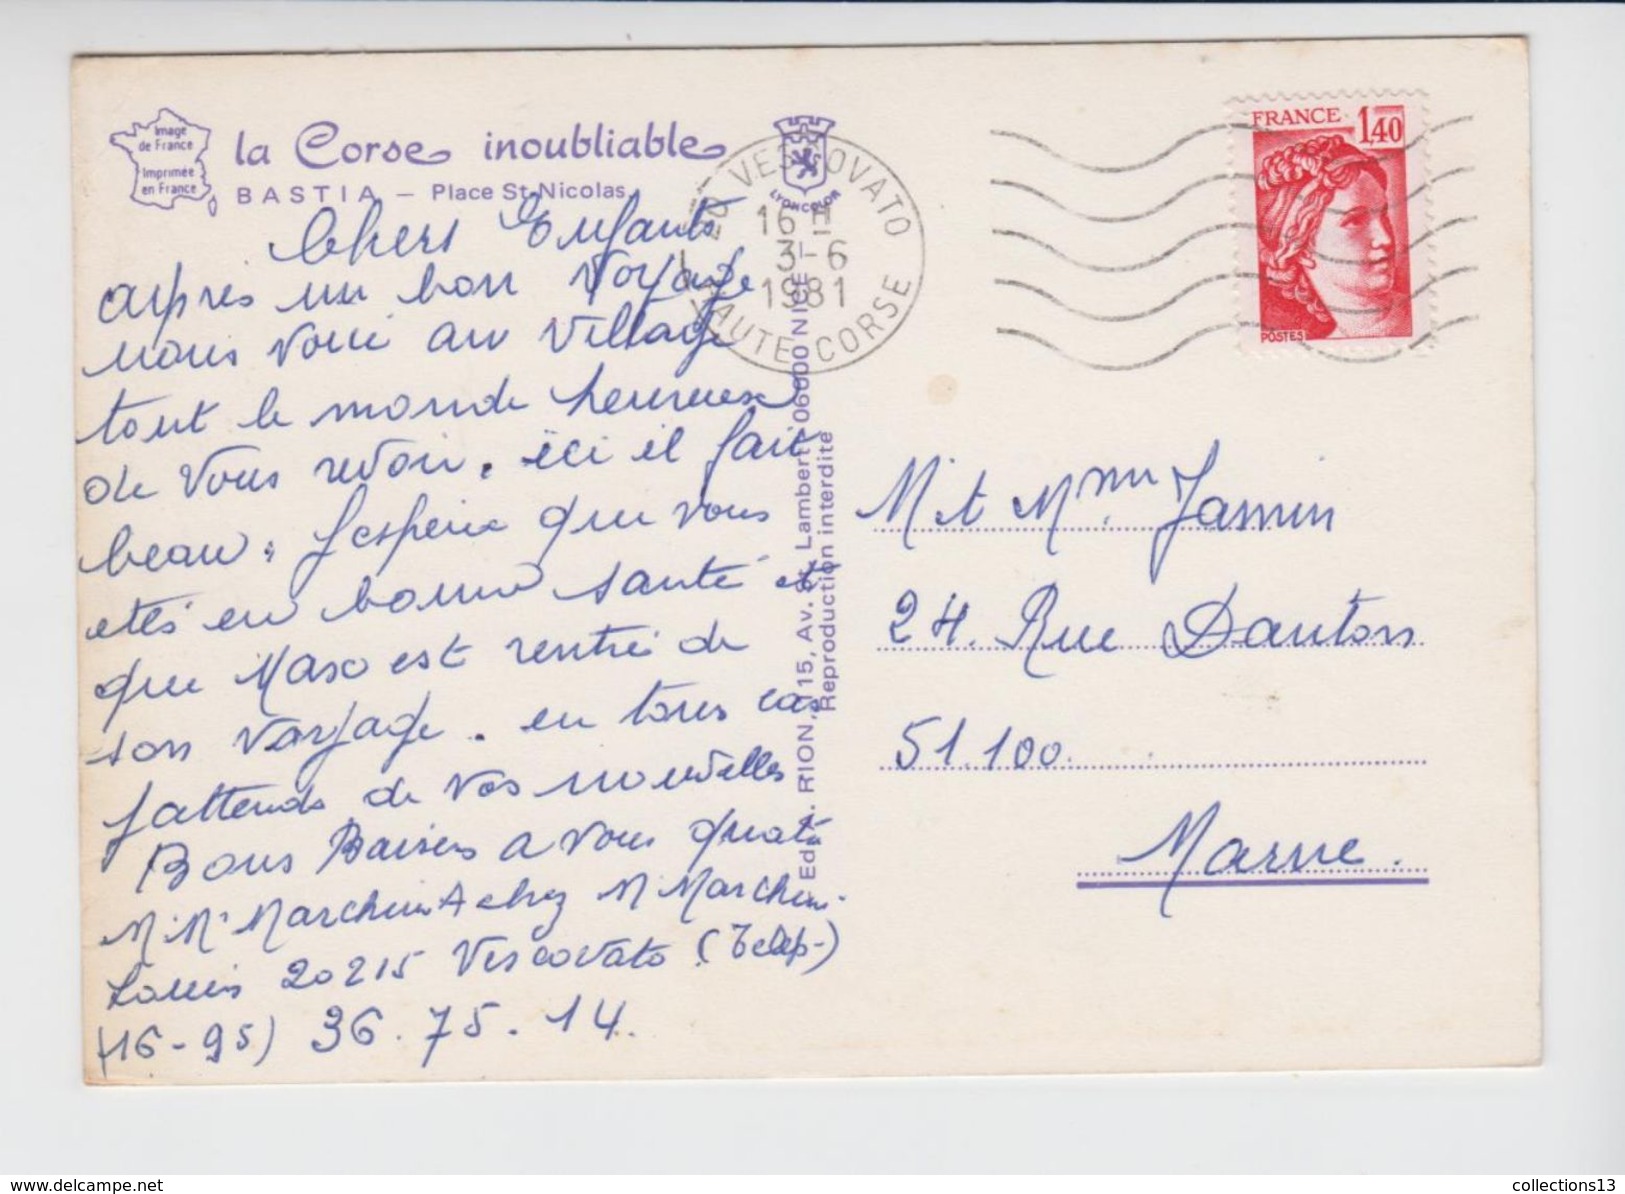 Image
de France
Imprimée
en France
la Corse inoubliable
BASTIA - Place St-Nicolas
LYONCOLOR
20 VESCOVATO
16 H
3-6
1981
HAUTE CORSE
FRANCE
1,40
POSTES
Chers Enfants
après un bon voyage
nous voici au village
tout le monde heureux
de vous revoir. ici il fait
beau. J'espère que vous
etes en bonne santé et
que Maxo est rentré de
son voyage. en tous cas
j'attends de vos nouvelles
Bons Baisers a vous quatre
M. Mr chez M
Louis 20215 Vescovato (Telep-)
(16-95) 36.75.14.
Edit. RION, 115, Av. St. Lambert, 06000 NICE
Reproduction interdite
M. et Mme Jamin
24. Rue Danton
51.100.
Marne.
www.delcampe.net
collections13